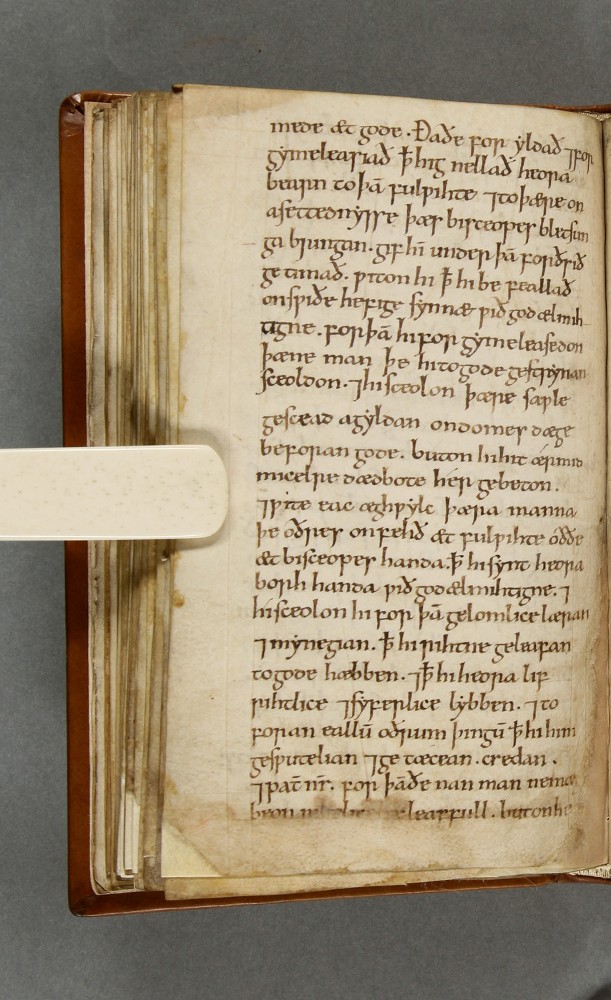 mede æt gode. Ða ðe for ẏldað ⁊ for
gẏmeleasiað ꝥ hig nellað heora
bearn to þā fulƿihte ⁊ to þære on
asettednẏsse þæs bisceopes bletsun
ga bringan. gif hī under þā forðsið
ge timað. ƿiton hi ꝥ hi be feallað
on sƿiðe hefige sẏnnæ ƿið god ælmih
tigne. for þā hi for gẏmeleasedon
þæne man þe hi to gode gestrẏnan
sceoldon. ⁊ hi sceolon þære saƿle
gescead agẏldan on domes dæge
beforan gode. buton hi hit ær mid
micelre dædbote her gebeton.
⁊ ƿite eac æghƿẏlc þæra manna
þe oðres onfehð æt fulƿihte oððe
æt bisceopes handa. ꝥ hi sẏnt heora
borh handa ƿið god ælmihtigne. ⁊
hi sceolon hi for þā gelomlice læran
⁊ mẏnegian. ꝥ hi rihtne geleafan
to gode hæbben. ⁊ ꝥ hi heora lif
rihtlice ⁊ sẏferlice lẏbben. ⁊ to
foran eallū oðrum þingū ꝥ hi him
gesƿutelian ⁊ ge tæcean. credan.
⁊ pat̄ nr̄. for þā ðe nan man ne mæ
beon leaffull. buton he